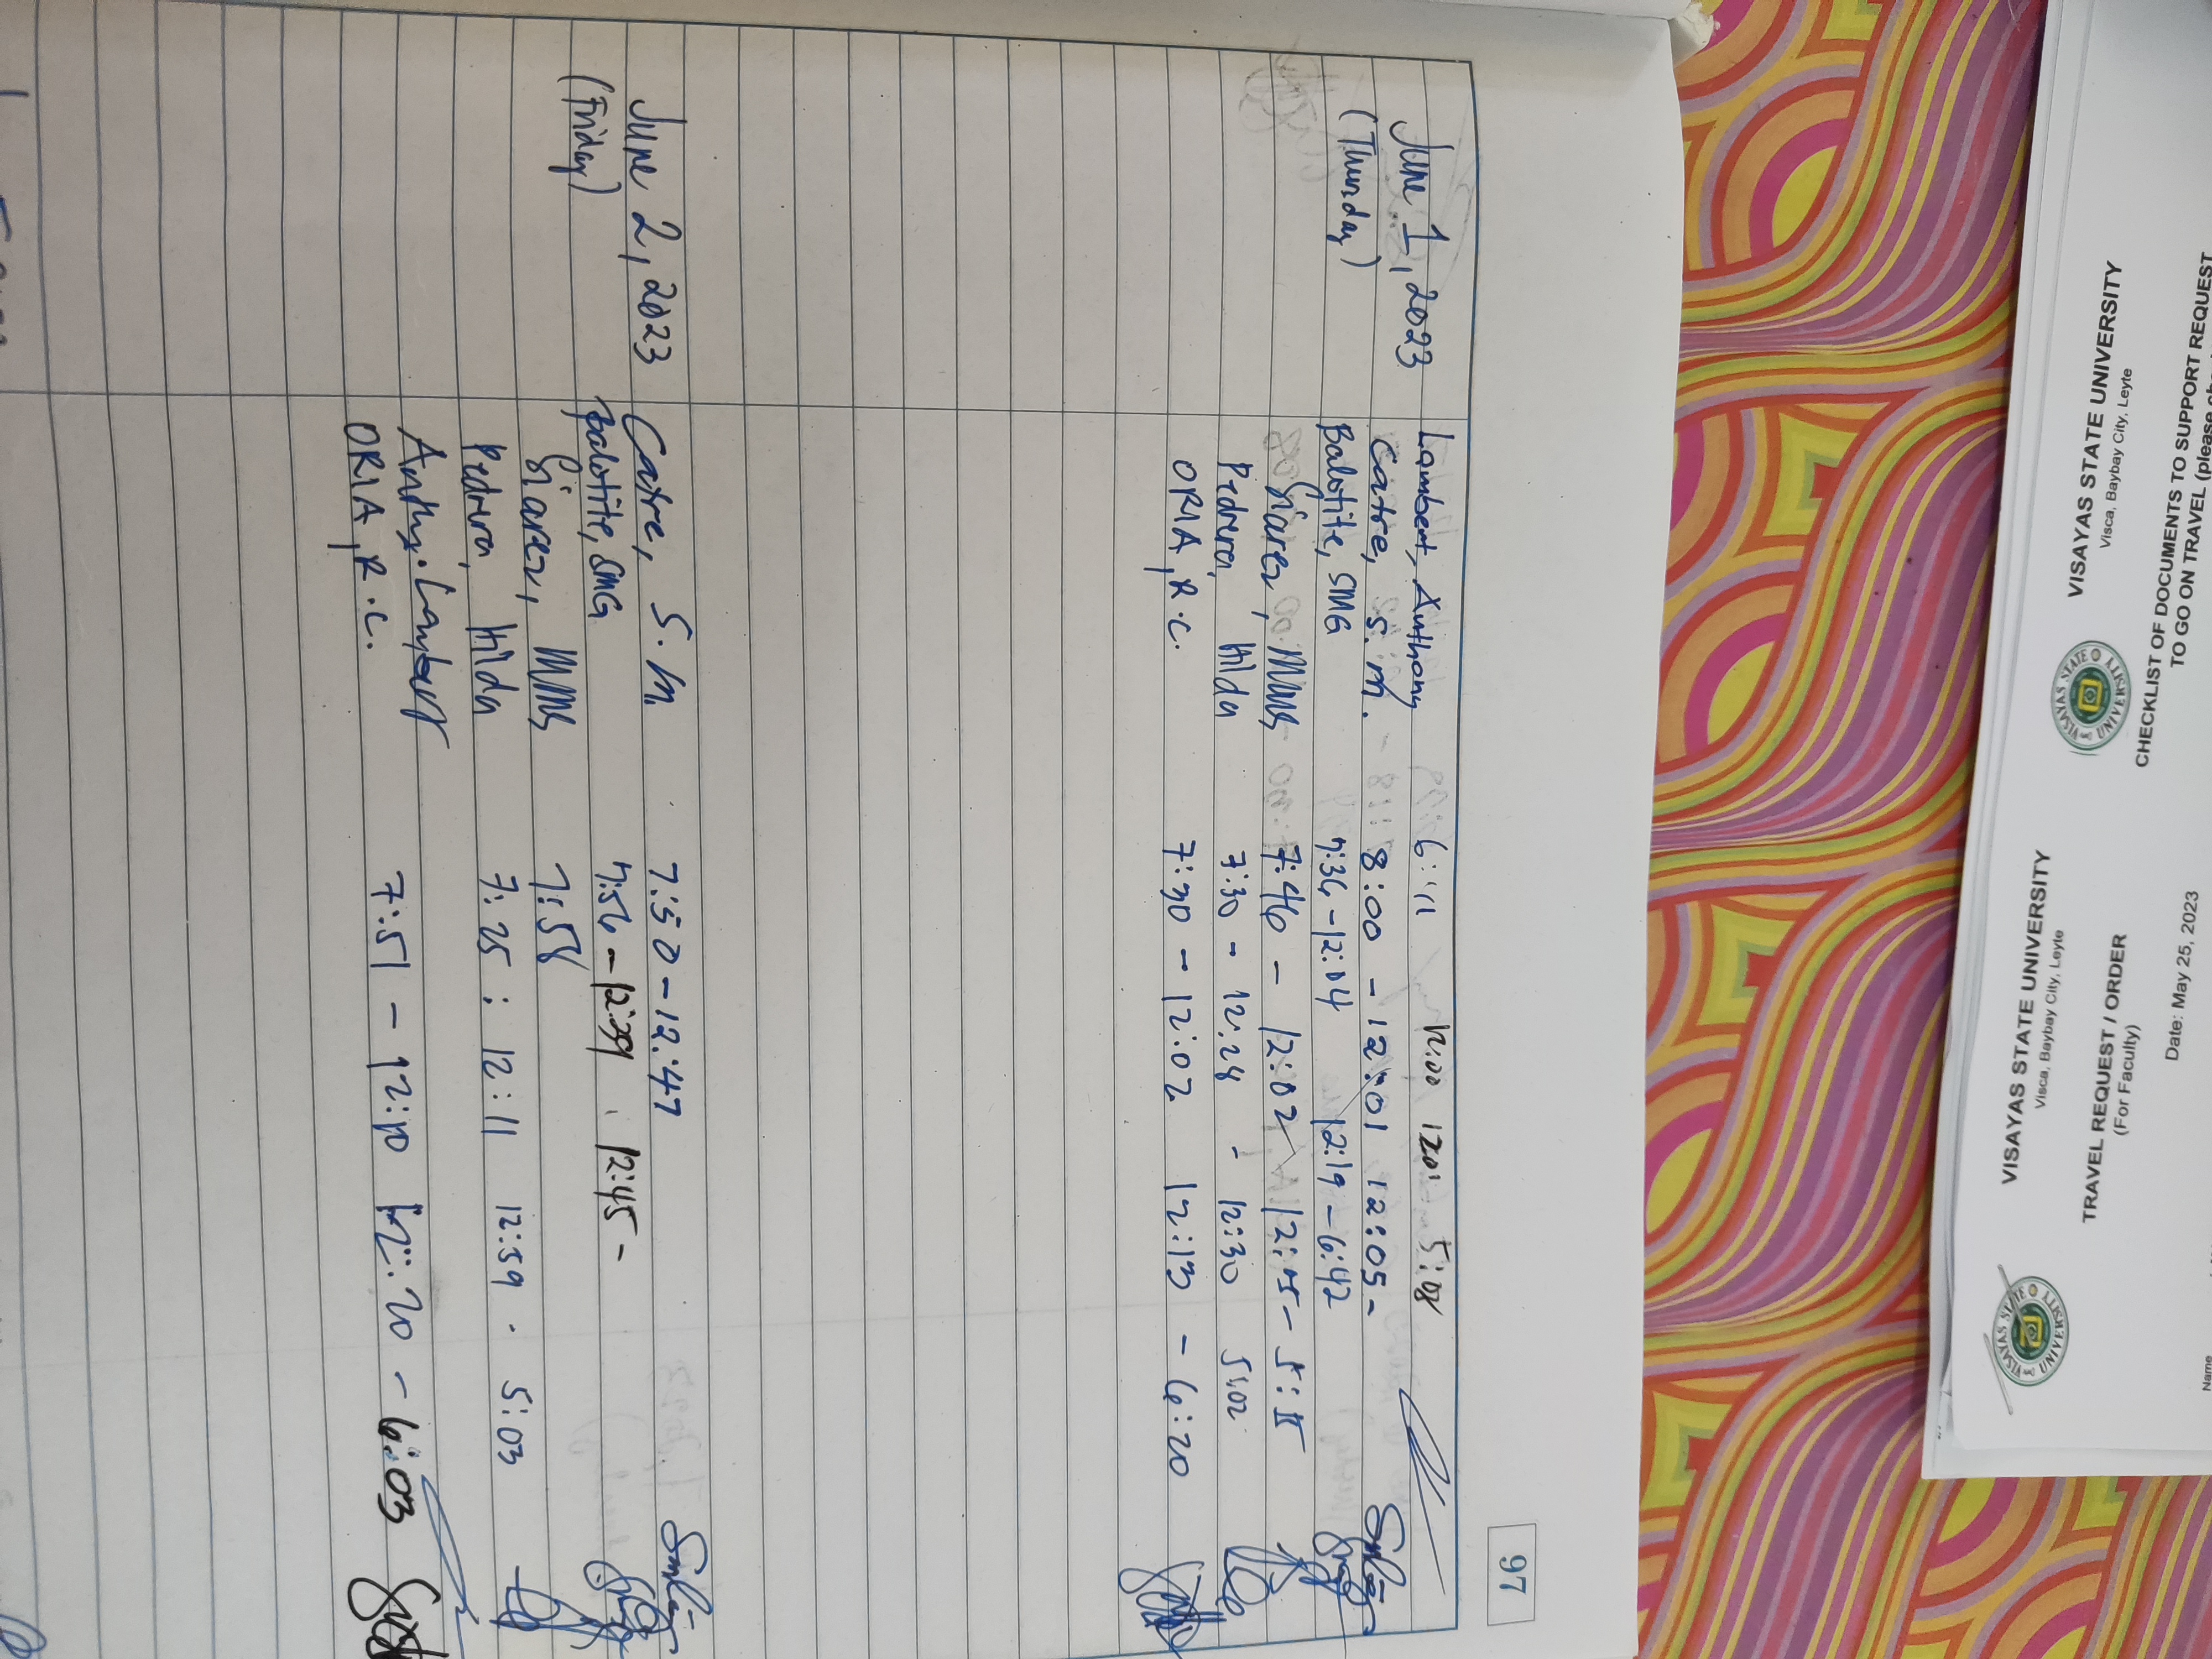 97
June 1, 2023
(Thursday)
Lambert, Anthony 6:11 12:00 5:08
Catre, S.M. 8:00 - 12:01 12:05 -
Balotite, SMG 7:36 - 12:04 12:19 - 6:42
Giarez, MMG 7:46 - 12:02 12:15 - 5:15
Pedrera, Hilda 7:30 - 12:28 - 12:30 5:02
ORIA, R.C. 7:30 - 12:02 12:13 - 6:20
June 2, 2023
(Friday)
Catre, S.M 7:50 - 12:47
Balotite, SMG 7:56 - 12:39 12:45 -
Giarez, MMG 7:58
Pedrera, Hilda 7:25 : 12:11 12:59 . 5:03
Anthy. Lambert
ORIA, R.C. 7:51 - 12:10 12:20 - 6:03
VISAYAS STATE UNIVERSITY
Visca, Baybay City, Leyte
CHECKLIST OF DOCUMENTS TO SUPPORT REQUEST
TO GO ON TRAVEL (please
VISAYAS STATE UNIVERSITY
Visca, Baybay City, Leyte
TRAVEL REQUEST / ORDER
(For Faculty)
Date: May 25, 2023
Name
VISAYAS STATE UNIVERSITY
VISAYAS STATE UNIVERSITY